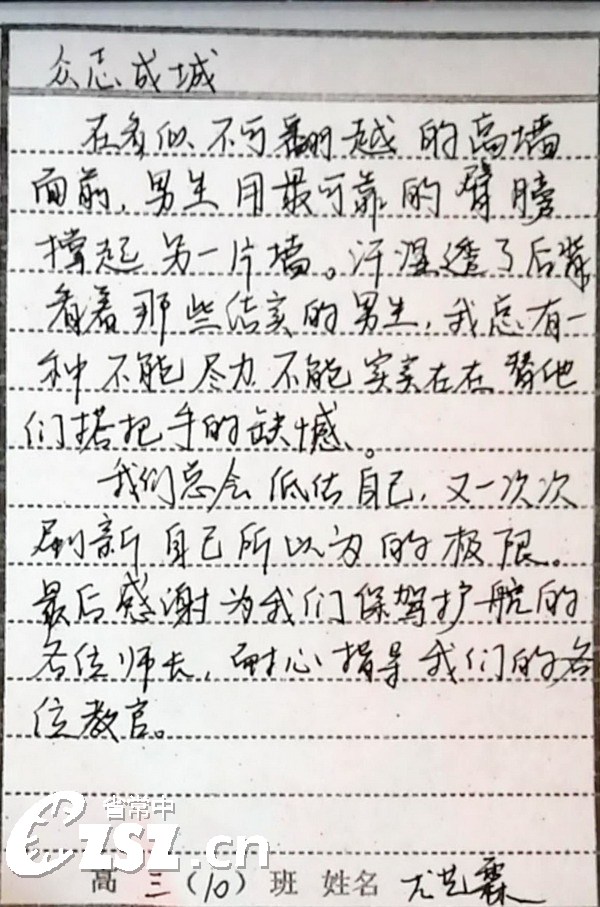 众志成城
在看似不可翻越的高墙
面前,男生用最可靠的臂膀
撑起另一片墙。汗湿透了后背
看着那些结实的男生,我总有一
种不能尽力不能实实在在替他
们搭把手的缺憾。
我们总会低估自己,又一次次
刷新自己所以为的极限。
最后感谢为我们保驾护航的
各位师长,耐心指导我们的各
位教官。
省常中
CZSZ.cn
高三(10)班 姓名 尤艺霖